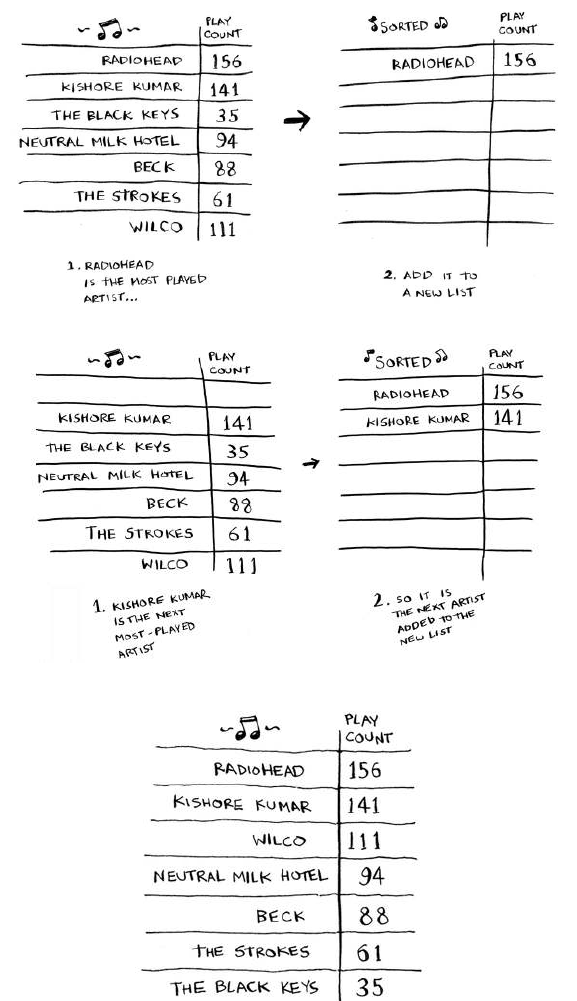 PLAY
COUNT
RADIOHEAD 156
KISHORE KUMAR 141
THE BLACK KEYS 35
NEUTRAL MILK HOTEL 94
BECK 88
THE STROKES 61
WILCO 111
1. RADIOHEAD
IS THE MOST PLAYED
ARTIST...
SORTED PLAY
COUNT
RADIOHEAD 156
2. ADD IT TO
A NEW LIST
PLAY
COUNT
KISHORE KUMAR 141
THE BLACK KEYS 35
NEUTRAL MILK HOTEL 94
BECK 88
THE STROKES 61
WILCO 111
1. KISHORE KUMAR
IS THE NEXT
MOST-PLAYED
ARTIST
SORTED PLAY
COUNT
RADIOHEAD 156
KISHORE KUMAR 141
2. SO IT IS
THE NEXT ARTIST
ADDED TO THE
NEW LIST
PLAY
COUNT
RADIOHEAD 156
KISHORE KUMAR 141
WILCO 111
NEUTRAL MILK HOTEL 94
BECK 88
THE STROKES 61
THE BLACK KEYS 35